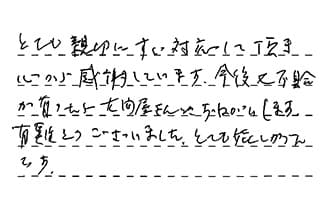 とても親切にすい対応して頂き
心から感謝しています。今後又不具合
が有ったら大問屋さんにおねがいします
有難とうございました。とても嬉しかった
です。